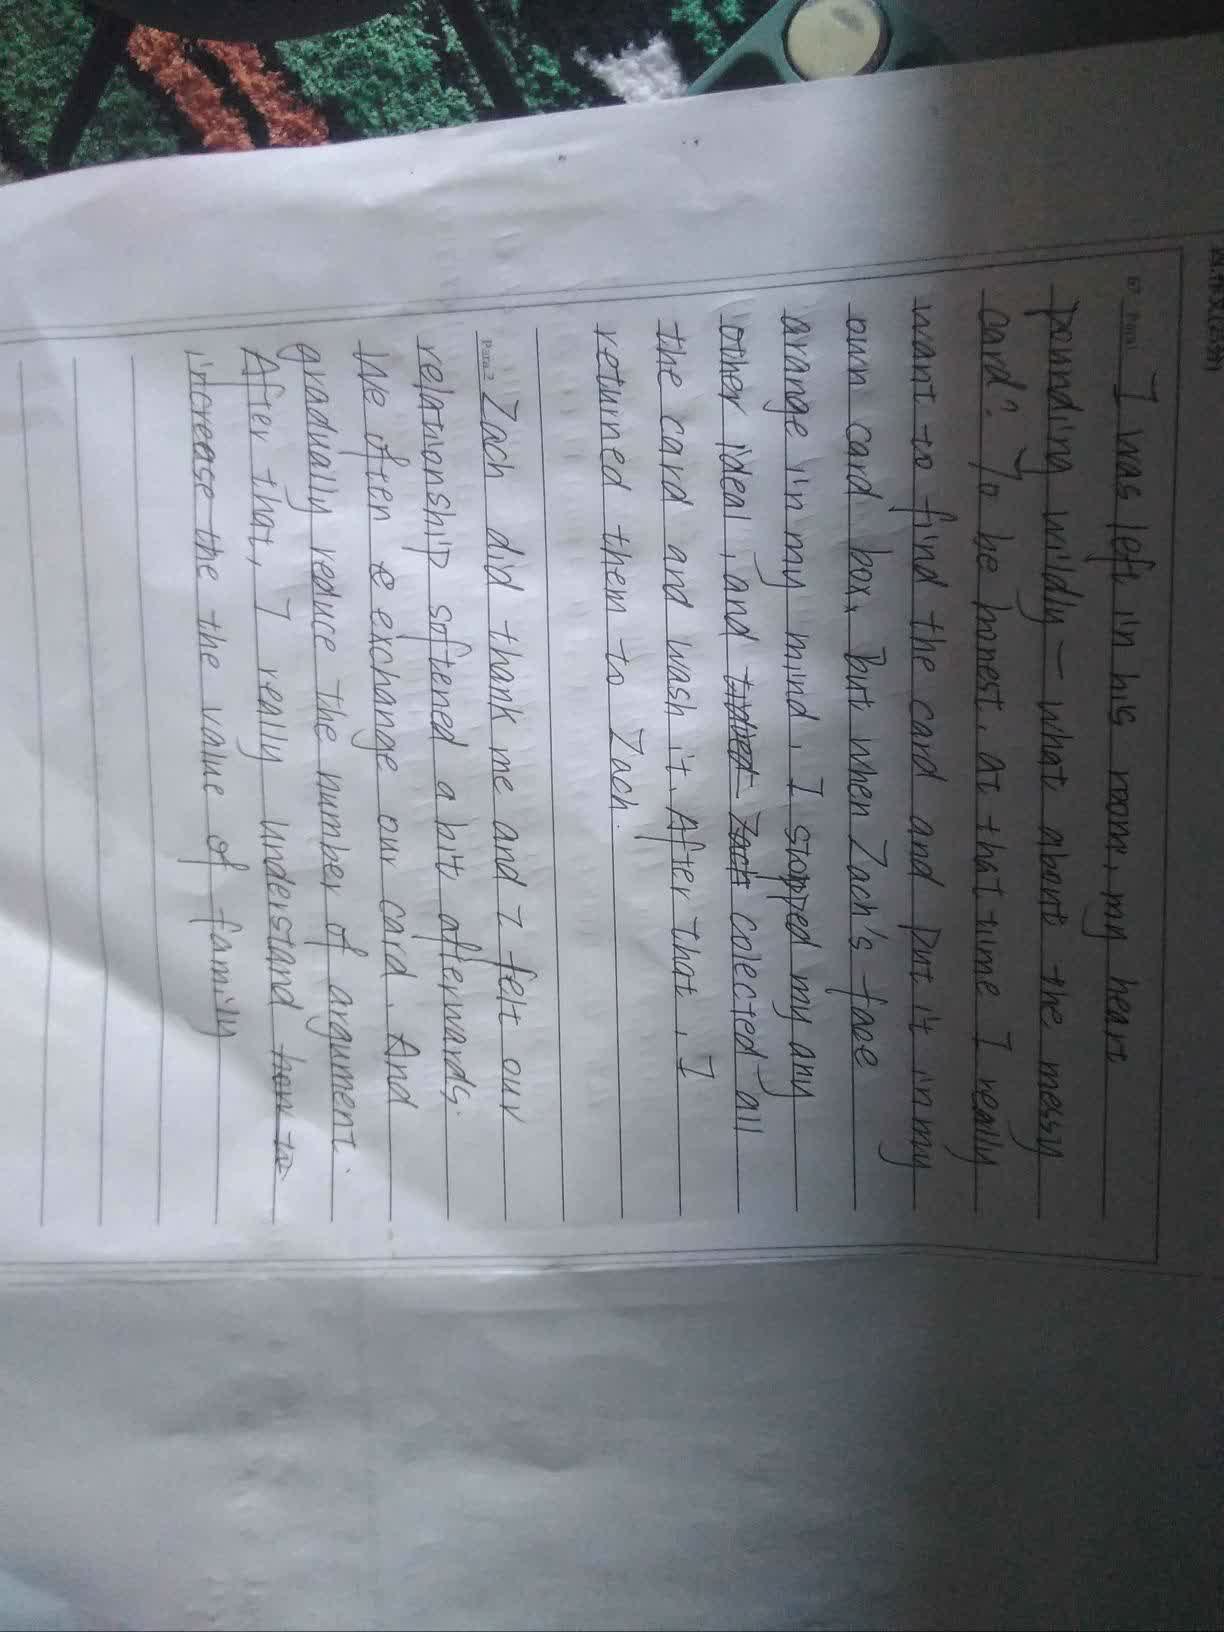 Para1 I was left in his room, my heart
pounding wildly — what about the messy
card? To be honest, at that time I really
want to find the card and put it in my
own card box. But when Zach's face
arange in my mind, I stopped my any
other ideal, and colected all
the card and wash it. After that, I
returned them to Zach.
Para.2 Zach did thank me and I felt our
relationship softened a bit afterwards.
We often exchange our card. And
gradually reduce the number of argument.
After that, I really understand how to
increase the the value of family